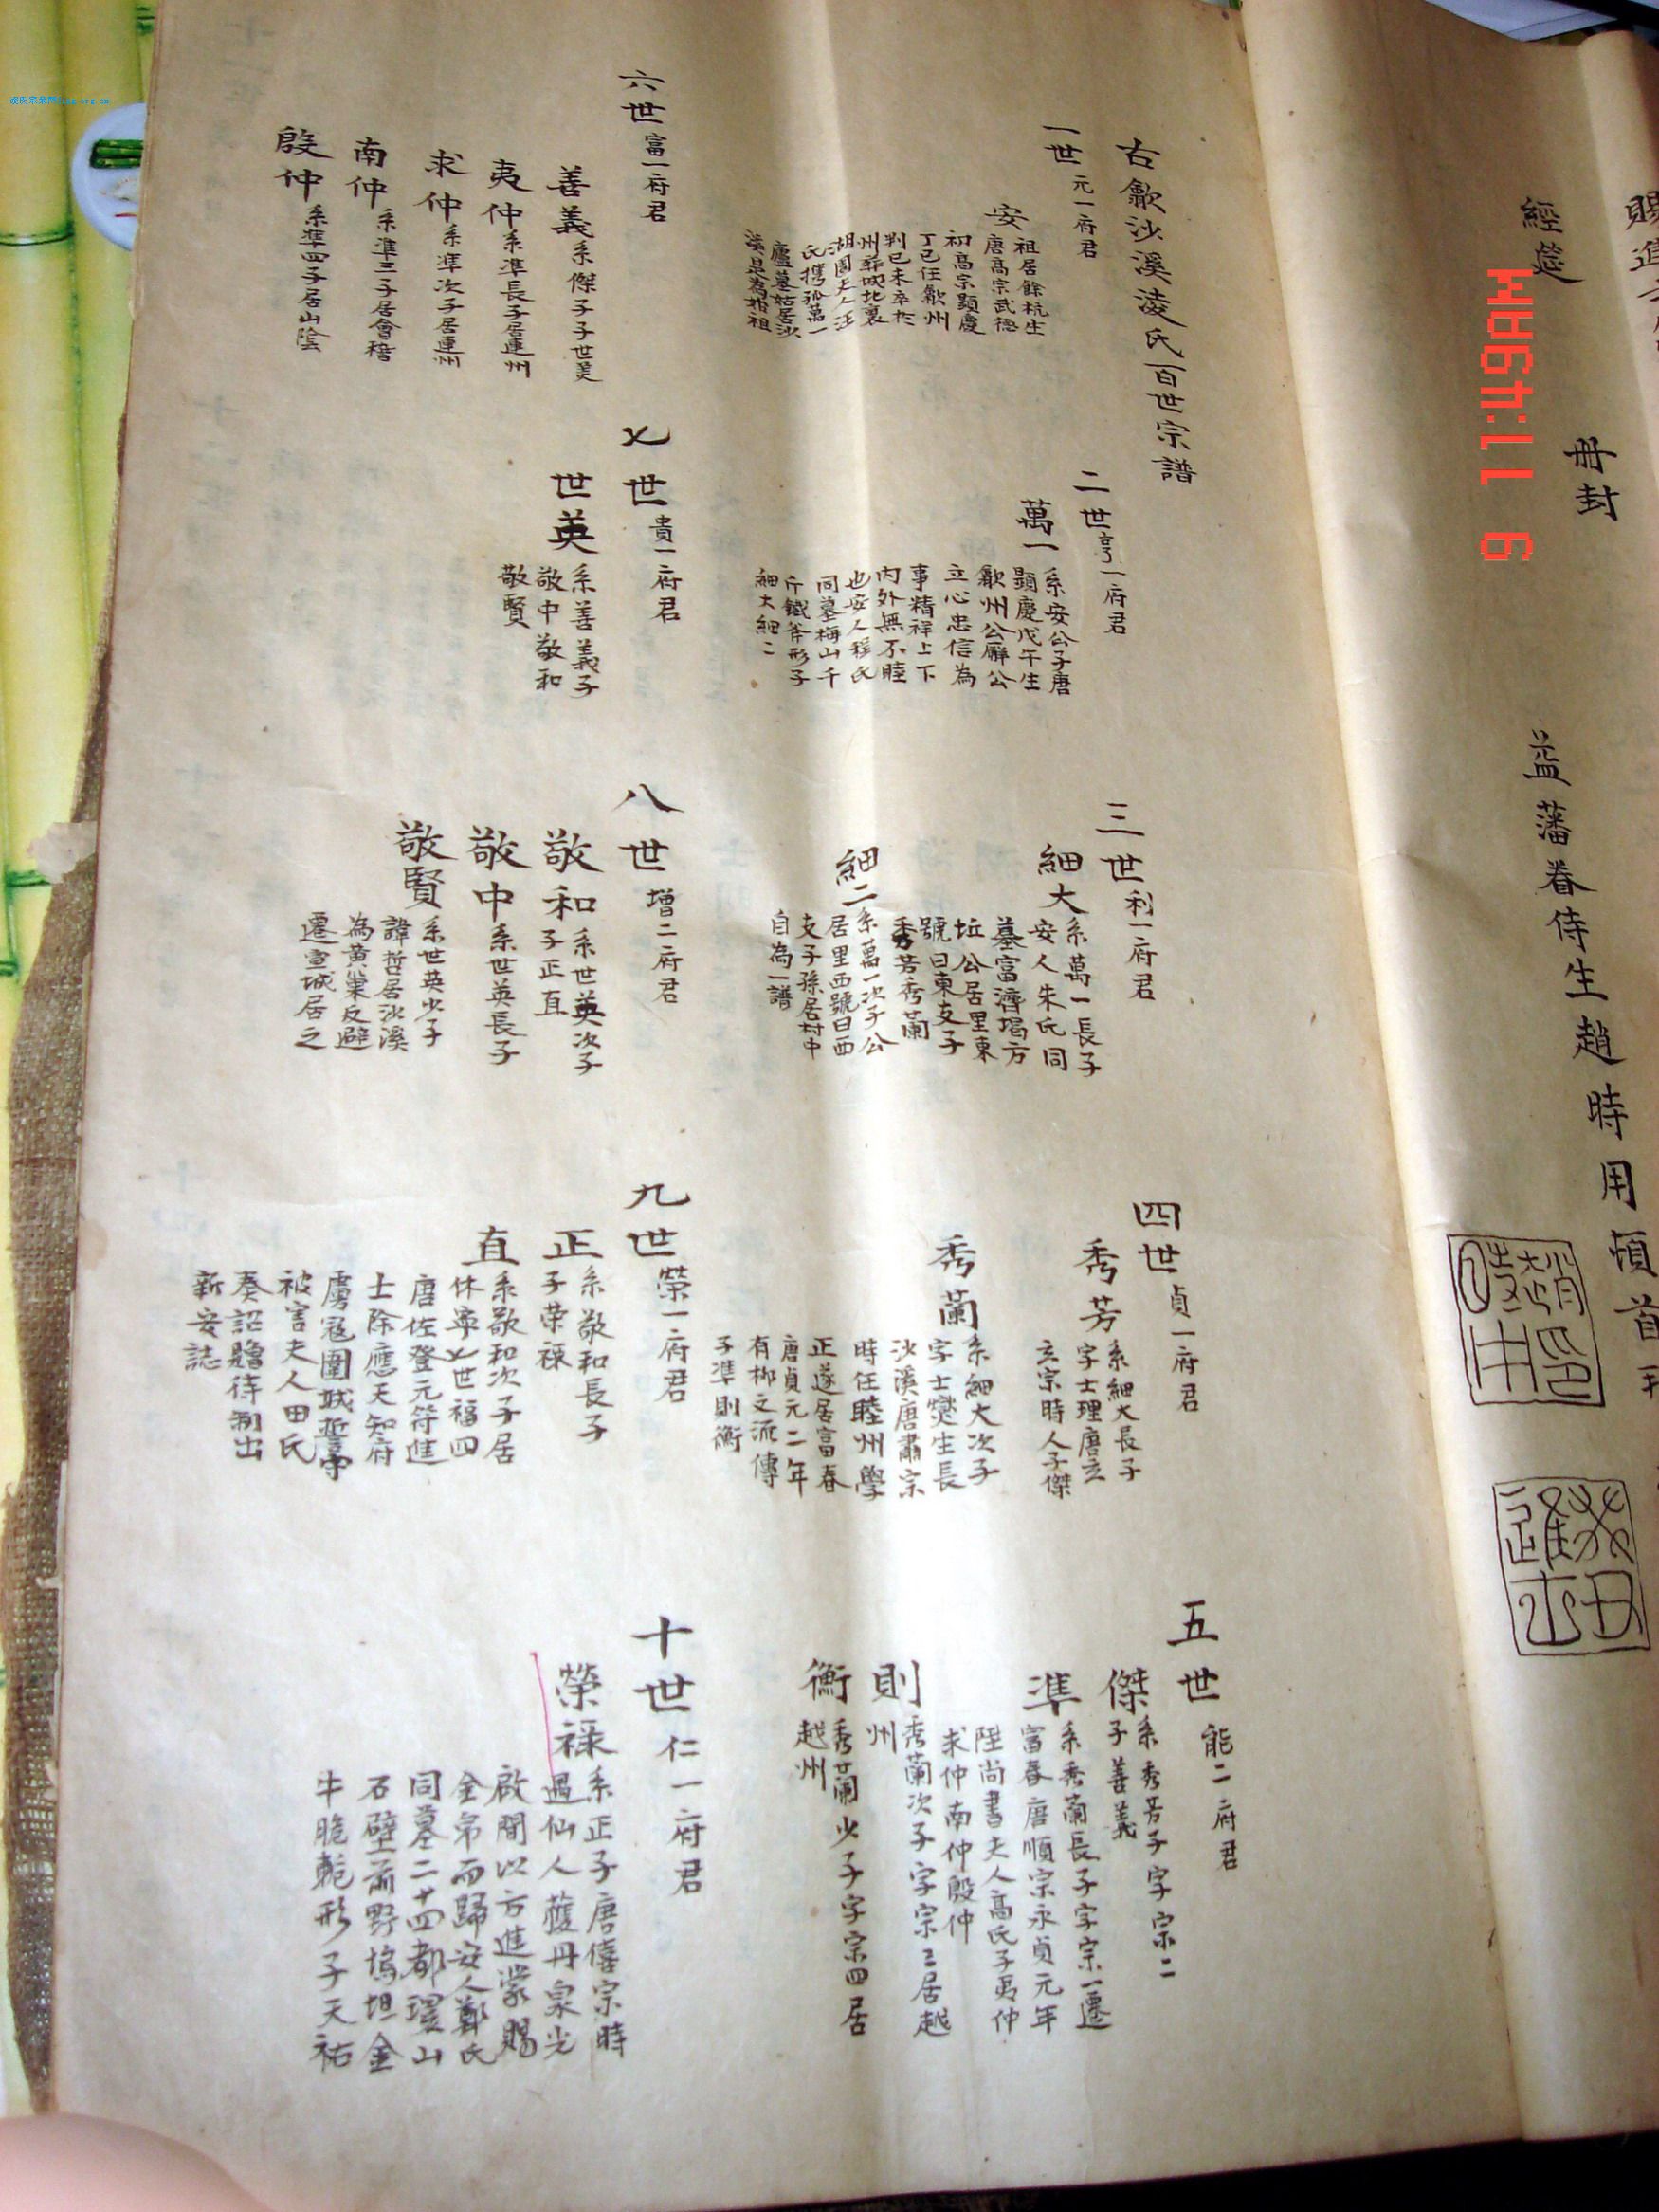 賜進
經筵
冊封
益藩眷侍生趙時用頓首拜
右歙沙溪淩氏百世宗譜
一世 元一府君
安
祖居餘杭生
唐高宗武德
初高宗顯慶
丁巳任歙州
判己未卒於
州葬城北裏
湖園夫人汪
氏攜孤萬一
廬墓姑居沙
溪是為始祖
二世 亨一府君
萬一
系安公子唐
顯慶戊午生
歙州公廨公
立心忠信為
事精祥上下
內外無不睦
也安人程氏
同墓梅山千
斤鐵斧形子
細大細二
三世 利一府君
細大
系萬一長子
安人朱氏同
墓富濟堨方
坵公居里東
號曰東支子
秀芳秀蘭
細二
系萬一次子公
居里西號曰西
支子孫居村中
自為一譜
四世 貞一府君
秀芳
系細大長子
字士理唐玄
玄宗時人子傑
秀蘭
系細大次子
字士燮生長
沙溪唐肅宗
時任睦州學
正遂居富春
唐貞元二年
有柳文流傳
子準則衡
五世 能二府君
傑
系秀芳子字宗二
子善義
準
系秀蘭長子字宗一遷
富春唐順宗永貞元年
陞尚書夫人高氏子夷仲
求仲南仲殷仲
則
秀蘭次子字宗三居越
州
衡
秀蘭少子字宗四居
越州
六世 富一府君
善義 系傑子子世英
夷仲 系準長子居連州
求仲 系準次子居連州
南仲 系準三子居會稽
殷仲 系準四子居山陰
七世 貴一府君
世英
系善義子
敬中敬和
敬賢
八世 增二府君
敬和
系世英次子
子正直
敬中 系世英長子
敬賢
系世英少子
諱哲居沙溪
為黃巢反避
遷宣城居之
九世 榮一府君
正
系敬和長子
子榮祿
直
系敬和次子居
休寧七世福四
唐佐登元符進
士除應天知府
虜寇圍城誓守
被害夫人田氏
奏詔贈待制出
新安誌
十世 仁一府君
榮祿
系正子唐僖宗時
遇仙人獲丹泉光
啟間以方進蒙賜
金帛而歸安人鄭氏
同墓二十四都環山
石壁前野塢坦金
牛脆軛形子天祐
11:49AM 6